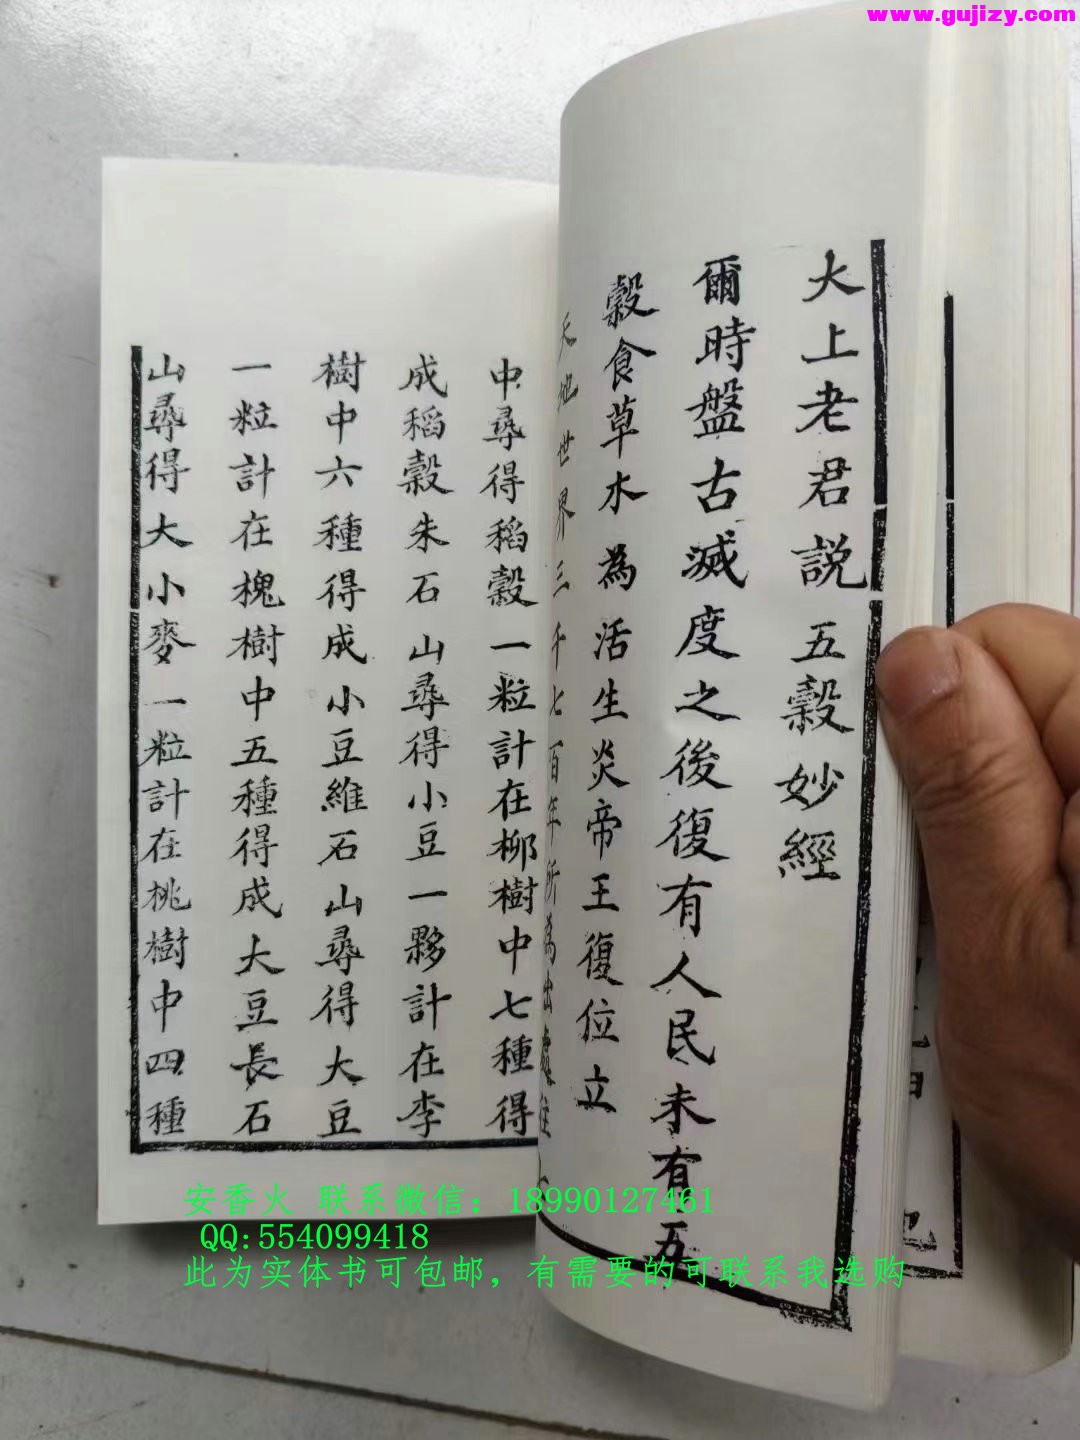 www.gujizy.com
大上老君説五穀妙經
爾時盤古滅度之後復有人民未有五
穀食草木為活生炎帝王復位立
天地世界三千七百年所為出處往
中尋得稻穀一粒計在柳樹中七種得
成稻穀朱石山尋得小豆一夥計在李
樹中六種得成小豆維石山尋得大豆
一粒計在槐樹中五種得成大豆長石
山尋得大小麥一粒計在桃樹中四種
安香火 联系微信：18990127461
QQ:554099418
此为实体书可包邮，有需要的可联系我选购